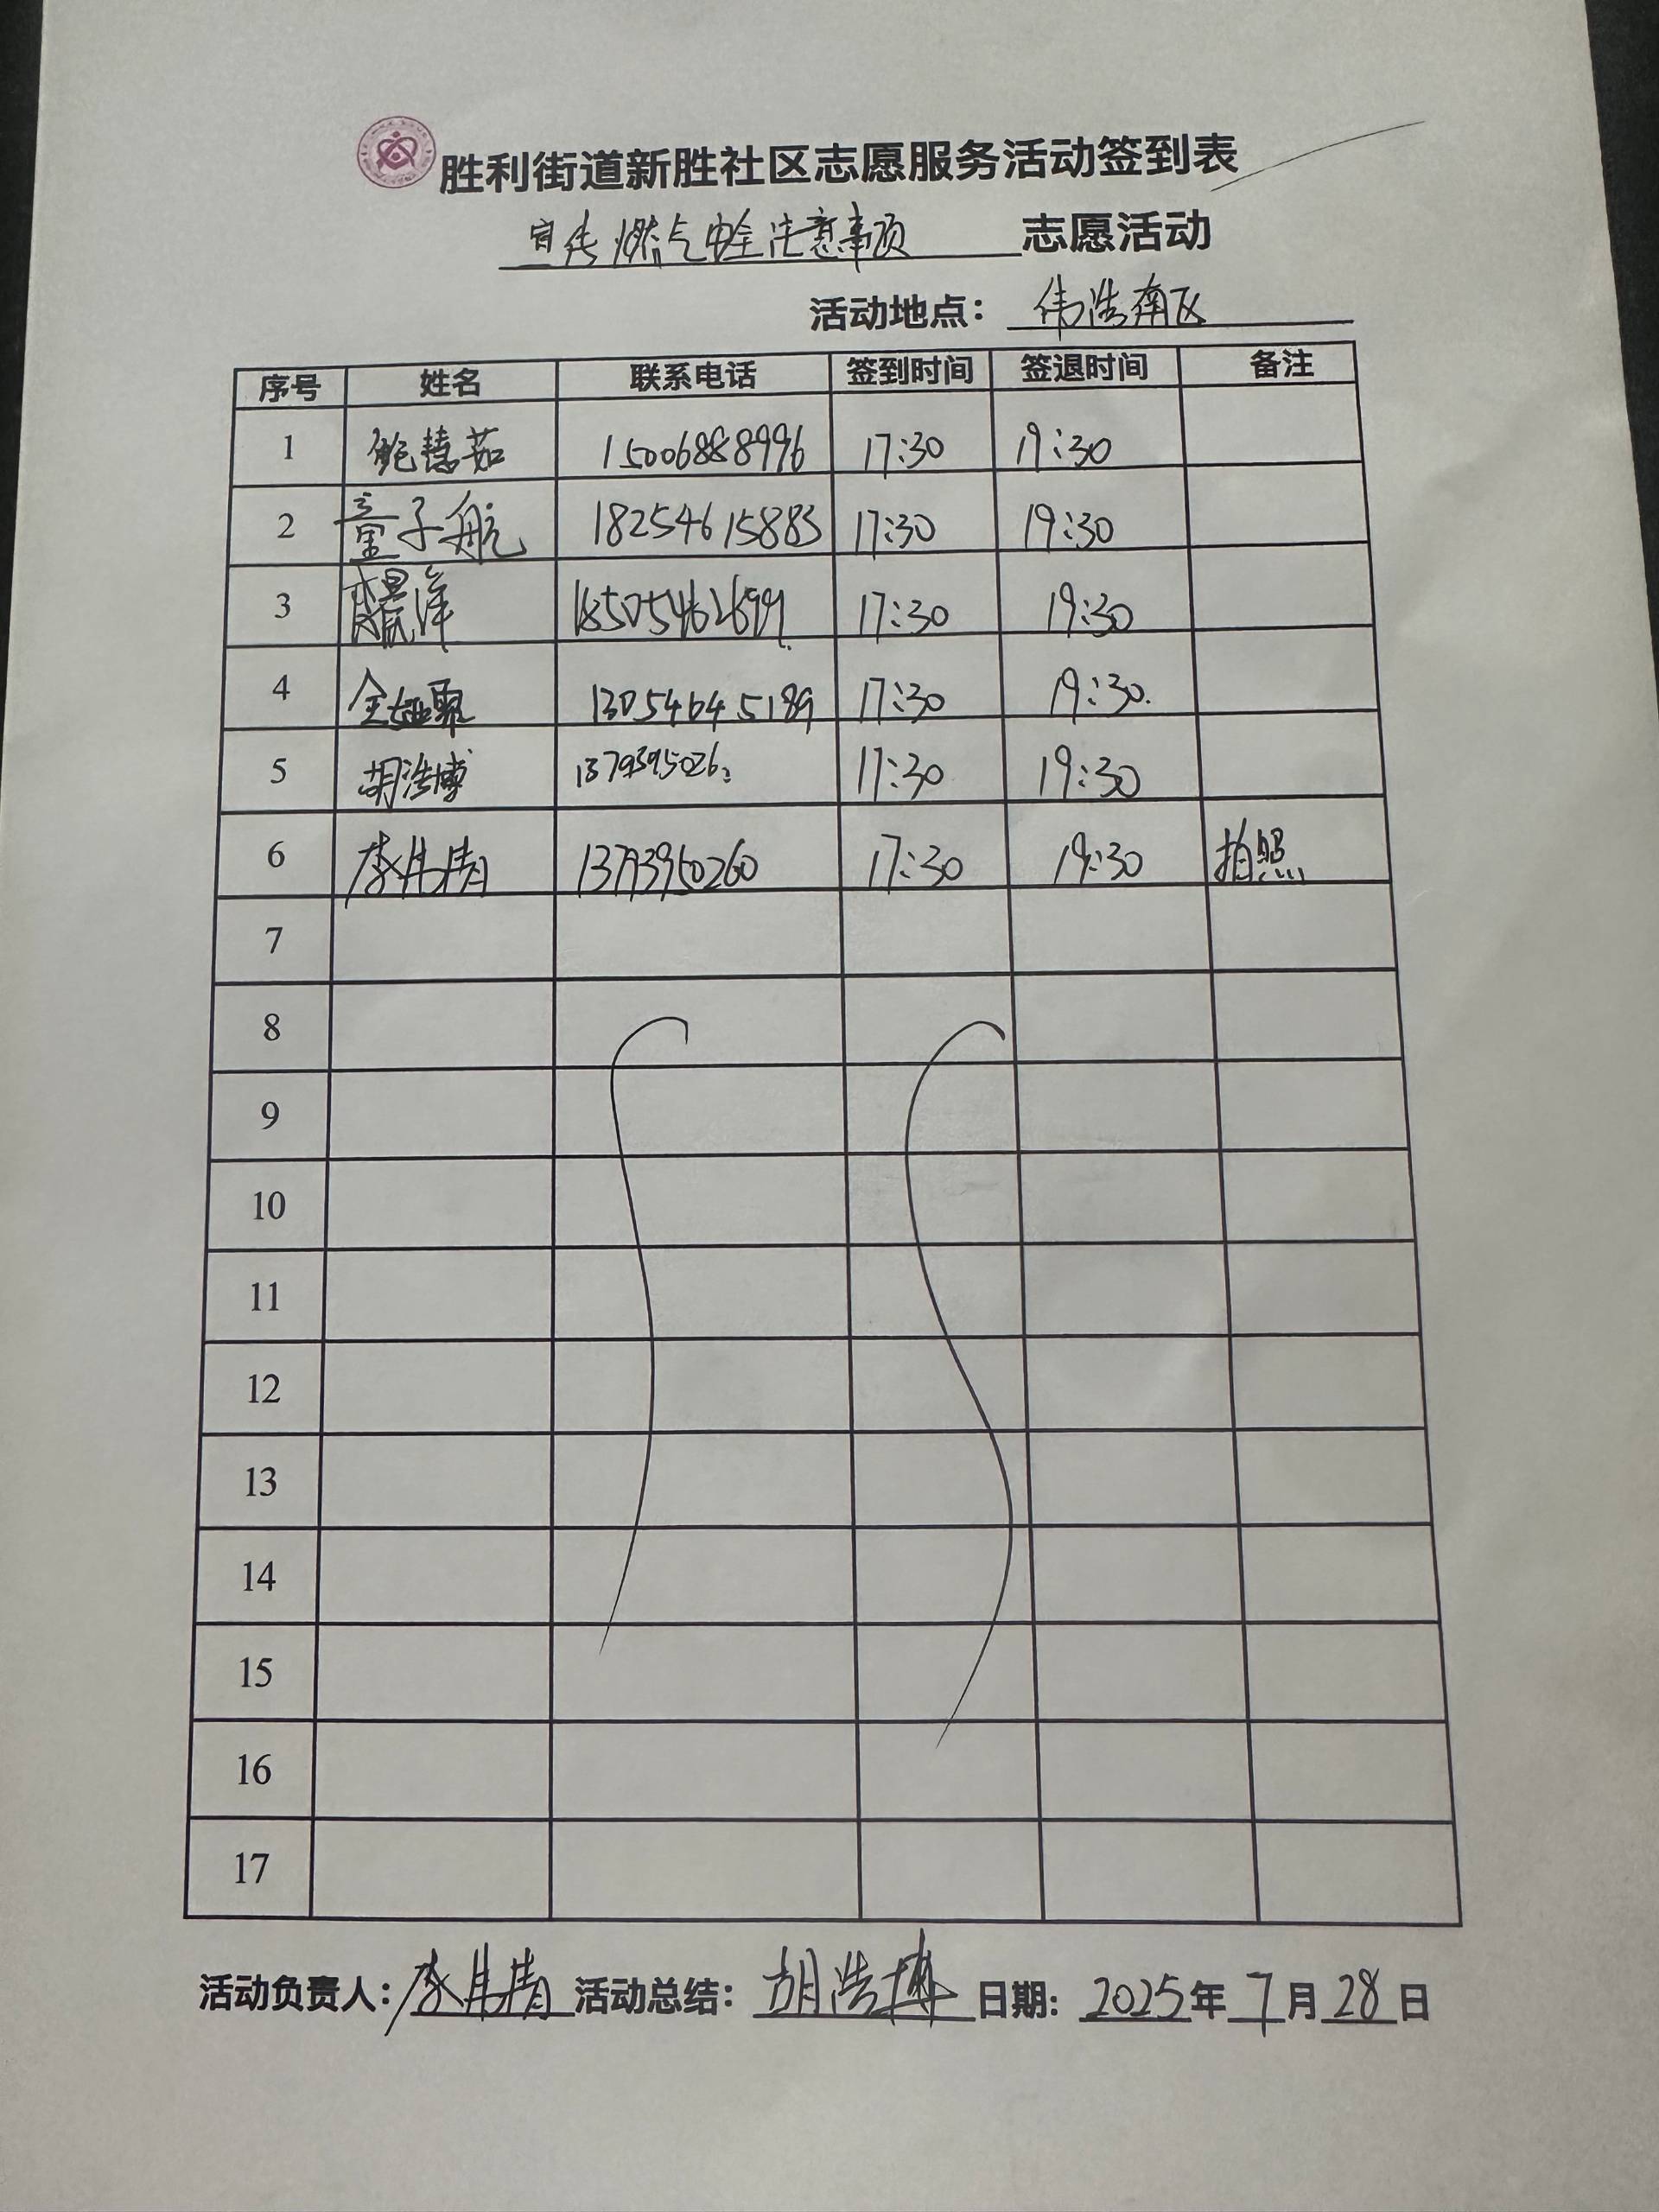 胜利街道新胜社区志愿服务活动签到表
宣传燃气安全注意事项 志愿活动
活动地点: 伟浩南区
序号 姓名 联系电话 签到时间 签退时间 备注
1 鲍慧茹 15006888996 17:30 19:30
2 童子航 18254615883 17:30 19:30
3 17:30 19:30
4 13054645189 17:30 19:30
5 胡浩博 17:30 19:30
6 李伟靖 13793950260 17:30 19:30 拍照
7
8
9
10
11
12
13
14
15
16
17
活动负责人: 李伟靖 活动总结: 胡浩博 日期: 2025年7月28日